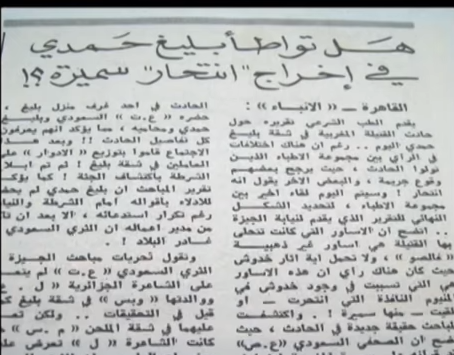 هل تواطأ بليغ حمدي
في إخراج "انتحار" سميرة ؟!
القاهرة ـ «الانباء» :
يقدم الطب الشرعي تقريره حول
حادث القتيلة المغربية في شقة بليغ
حمدي اليوم .. رغم ان هناك اختلافات
في الرأي بين مجموعة الاطباء الذين
تولوا الحادث ، حيث يرجح بعضهم
وقوع جريمة ، والبعض الاخر يقول انه
انتحار ! وسيتم اليوم لقاء اخير بين
مجموعة الاطباء ، لتحديد الشكل
النهائي للتقرير الذي يقدم لنيابة الجيزة
.. اتضح ان الاساور التي كانت تتحلى
بها القتيلة هي اساور غير ذهبية
« فالصو » ، ولا تحمل اية اثار خدوش
حيث كان هناك رأي ان هذه الاساور
هي التي تسببت في وجود خدوش في
المنيوم النافذة التي انتحرت ـ او
القيت ـ منها سميرة ! . واكتشفت
المباحث حقيقة جديدة في الحادث ، حيث
اتضح ان الصحفي السعودي «ع.ص»
الحادث في احد غرف منزل بليغ .
حضره « ع.ت » السعودي وبليغ
حمدي ومحاميه ، مما يؤكد انهم يعرفون
كل تفاصيل الحادث !! وبعد هذا
الاجتماع قاموا بتوزيع « الادوار » على
العاملين في شقة بليغ ! ثم ابلاغ
الشرطة باكتشاف الجثة ! كما يؤكد
تقرير المباحث ان بليغ حمدي لم يحضر
للادلاء باقواله امام الشرطة والنيابة
رغم تكرار استدعائه ، الا بعد ان
من مدير اعماله ان الثري السعودي
غادر البلاد ! .
وتقول تحريات مباحث الجيزة
الثري السعودي « ع.ت » لم
على الشاعرة الجزائرية « ل .
ووالدتها « وبس » في شقة بليغ
قيل في التحقيقات .. ولكن
عليهما في شقة الملحن « م.س »
كانت الشاعرة « ل » تعرض